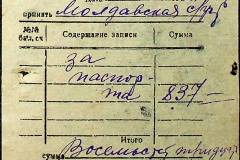 принять Молдавская
№№ бал. сч. Содержание записи Сумма
за
паспор-
та 837-
Итого
сумма Восемьсот тридца